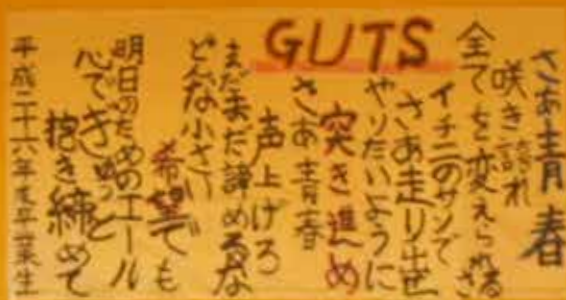 GUTS
さあ青春
咲き誇れ
全てを変えられるさ
イチニのサンで
さあ走り出せ
やりたいように
突き進め
さあ青春
声上げろ
まだまだ諦めるな
どんな小さい
希望でも
明日のためのエール
心でぎゅっと
抱き締めて
平成二十六年度卒業生